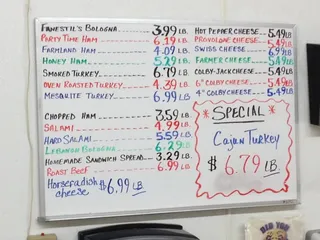 Fanestil's Bologna 3.99 LB.
Party Time Ham 6.19 LB.
Farmland Ham 4.09 LB.
Honey Ham 5.29 LB.
Smoked Turkey 6.79 LB.
Oven Roasted Turkey 4.39 LB.
Mesquite Turkey 6.99 LB.
Chopped Ham 3.59 LB.
Salami 4.99 LB.
Hard Salami 5.59 LB.
Lebanon Bologna 6.29 LB.
Homemade Sandwich Spread 3.29 LB.
Roast Beef 6.99 LB.
Horseradish cheese $6.99 LB
Hot Pepper Cheese 5.49 LB
Provolone Cheese 5.49 LB
Swiss Cheese 6.99 LB
Farmer Cheese 5.49 LB
Colby-Jack Cheese 5.49 LB
6" Colby Cheese 5.49 LB
4" Colby Cheese 5.49 LB
* Special *
Cajun Turkey
$6.79 LB
Old Tom